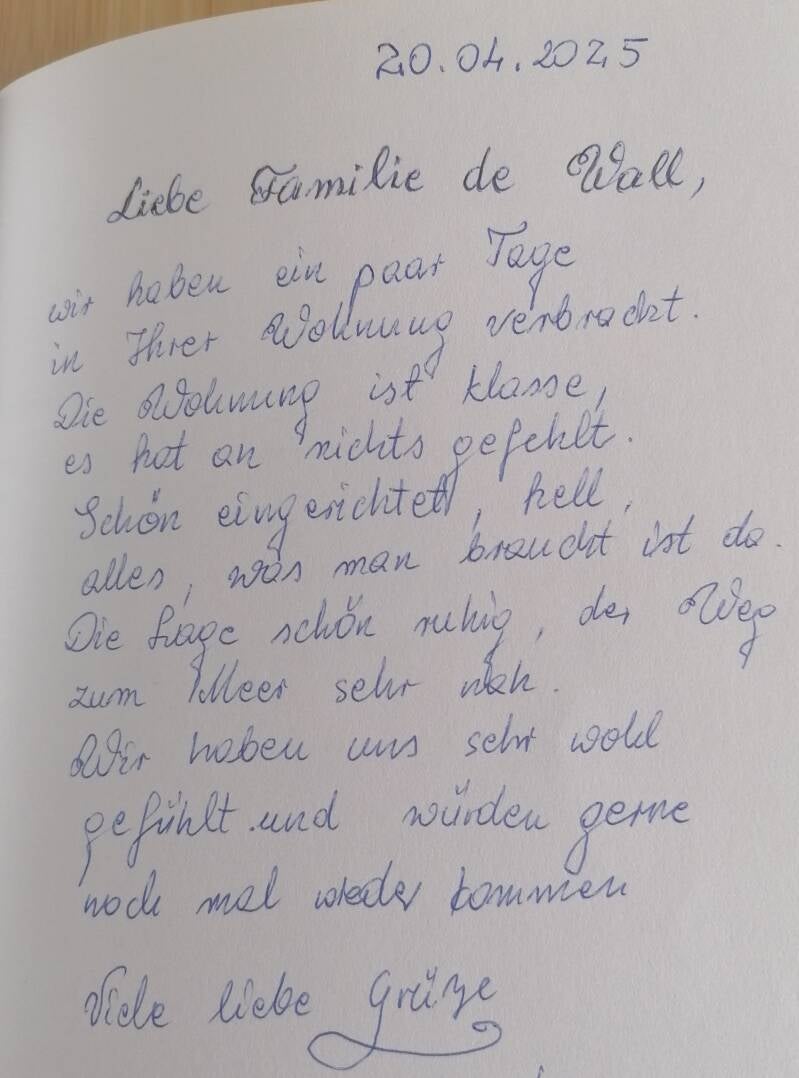 20.04.2025
Liebe Familie de Wall,
wir haben ein paar Tage
in Ihrer Wohnung verbracht.
Die Wohnung ist klasse,
es hat an nichts gefehlt.
Schön eingerichtet, hell,
alles, was man braucht ist da.
Die Lage schön ruhig, der Weg
zum Meer sehr nah.
Wir haben uns sehr wohl
gefühlt und würden gerne
noch mal wieder kommen
Viele liebe Grüße